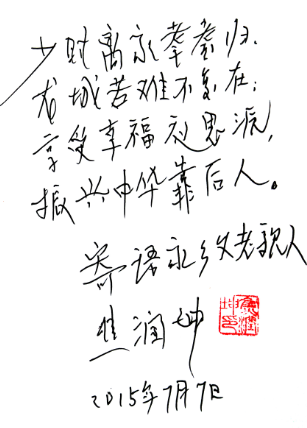 少时离家耄耋归,
龙城苦难不复在;
享受幸福应思源,
振兴中华靠后人。
寄语永乡父老亲人
焦润坤
2015年7月7日